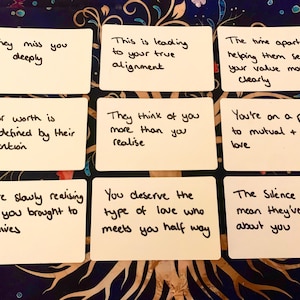 hey miss you
deeply
This is leading
to your true
alignment
The time apart
helping them se
your value mo
clearly
r worth is
defined by their
ention
They think of you
more than you
realise
You're on a p
to mutual +
love
e slowly realising
you brought to
You deserve the
type of love who
meets you half way
The Silence
mean they've
about you